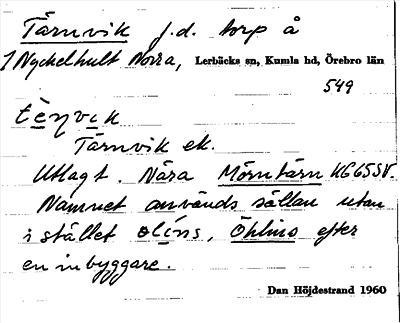 Tärnvik f.d. torp å
1 Nyckelhult Norra, Lerbäcks sn, Kumla hd, Örebro län
549
Tärnvik ek.
Utlagt. Nära Mörntärn KG65SV.
Namnet används sällan utan
i stället olíns, Öhlins efter
en inbyggare.
Dan Höjdestrand 1960